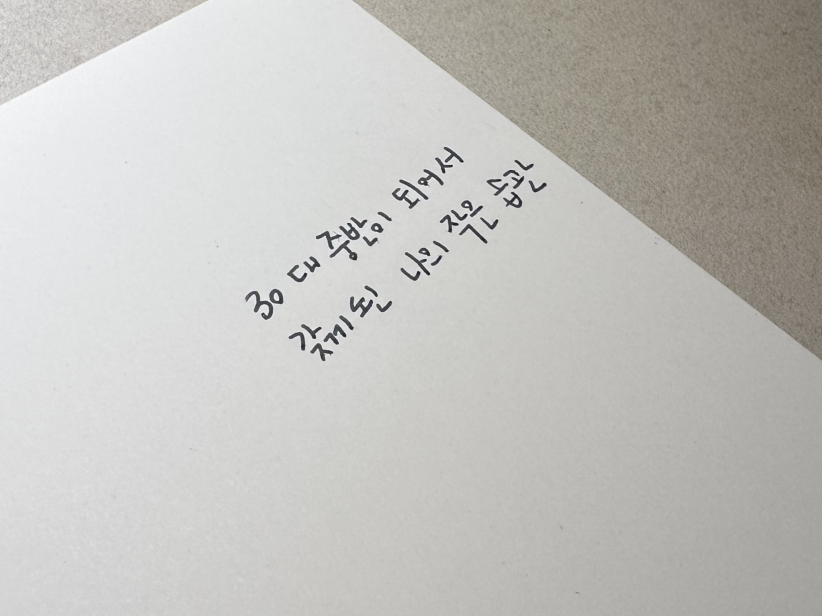 30대 중반이 되어서
갖게 된 나의 작은 습관